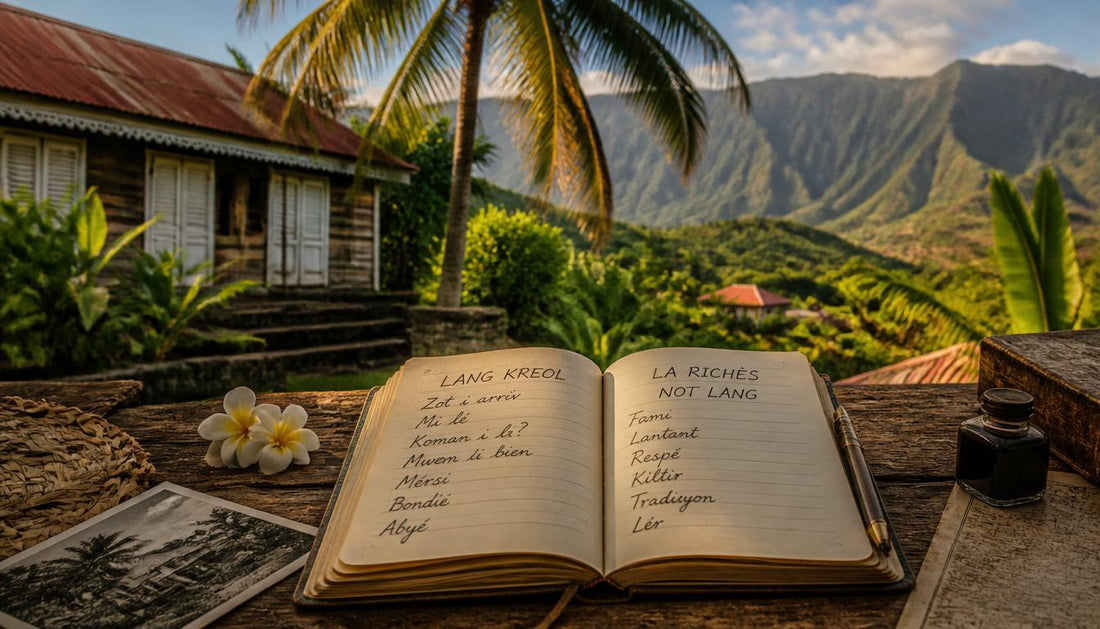 LANG KREOL
Zot i arriv
Mi lé
Koman i lé?
Mwem li bien
Mérsi
Bondié
Abyé
LA RICHÈS
NOT LANG
Fami
Lantant
Respé
Kiltir
Tradicyon
Lér